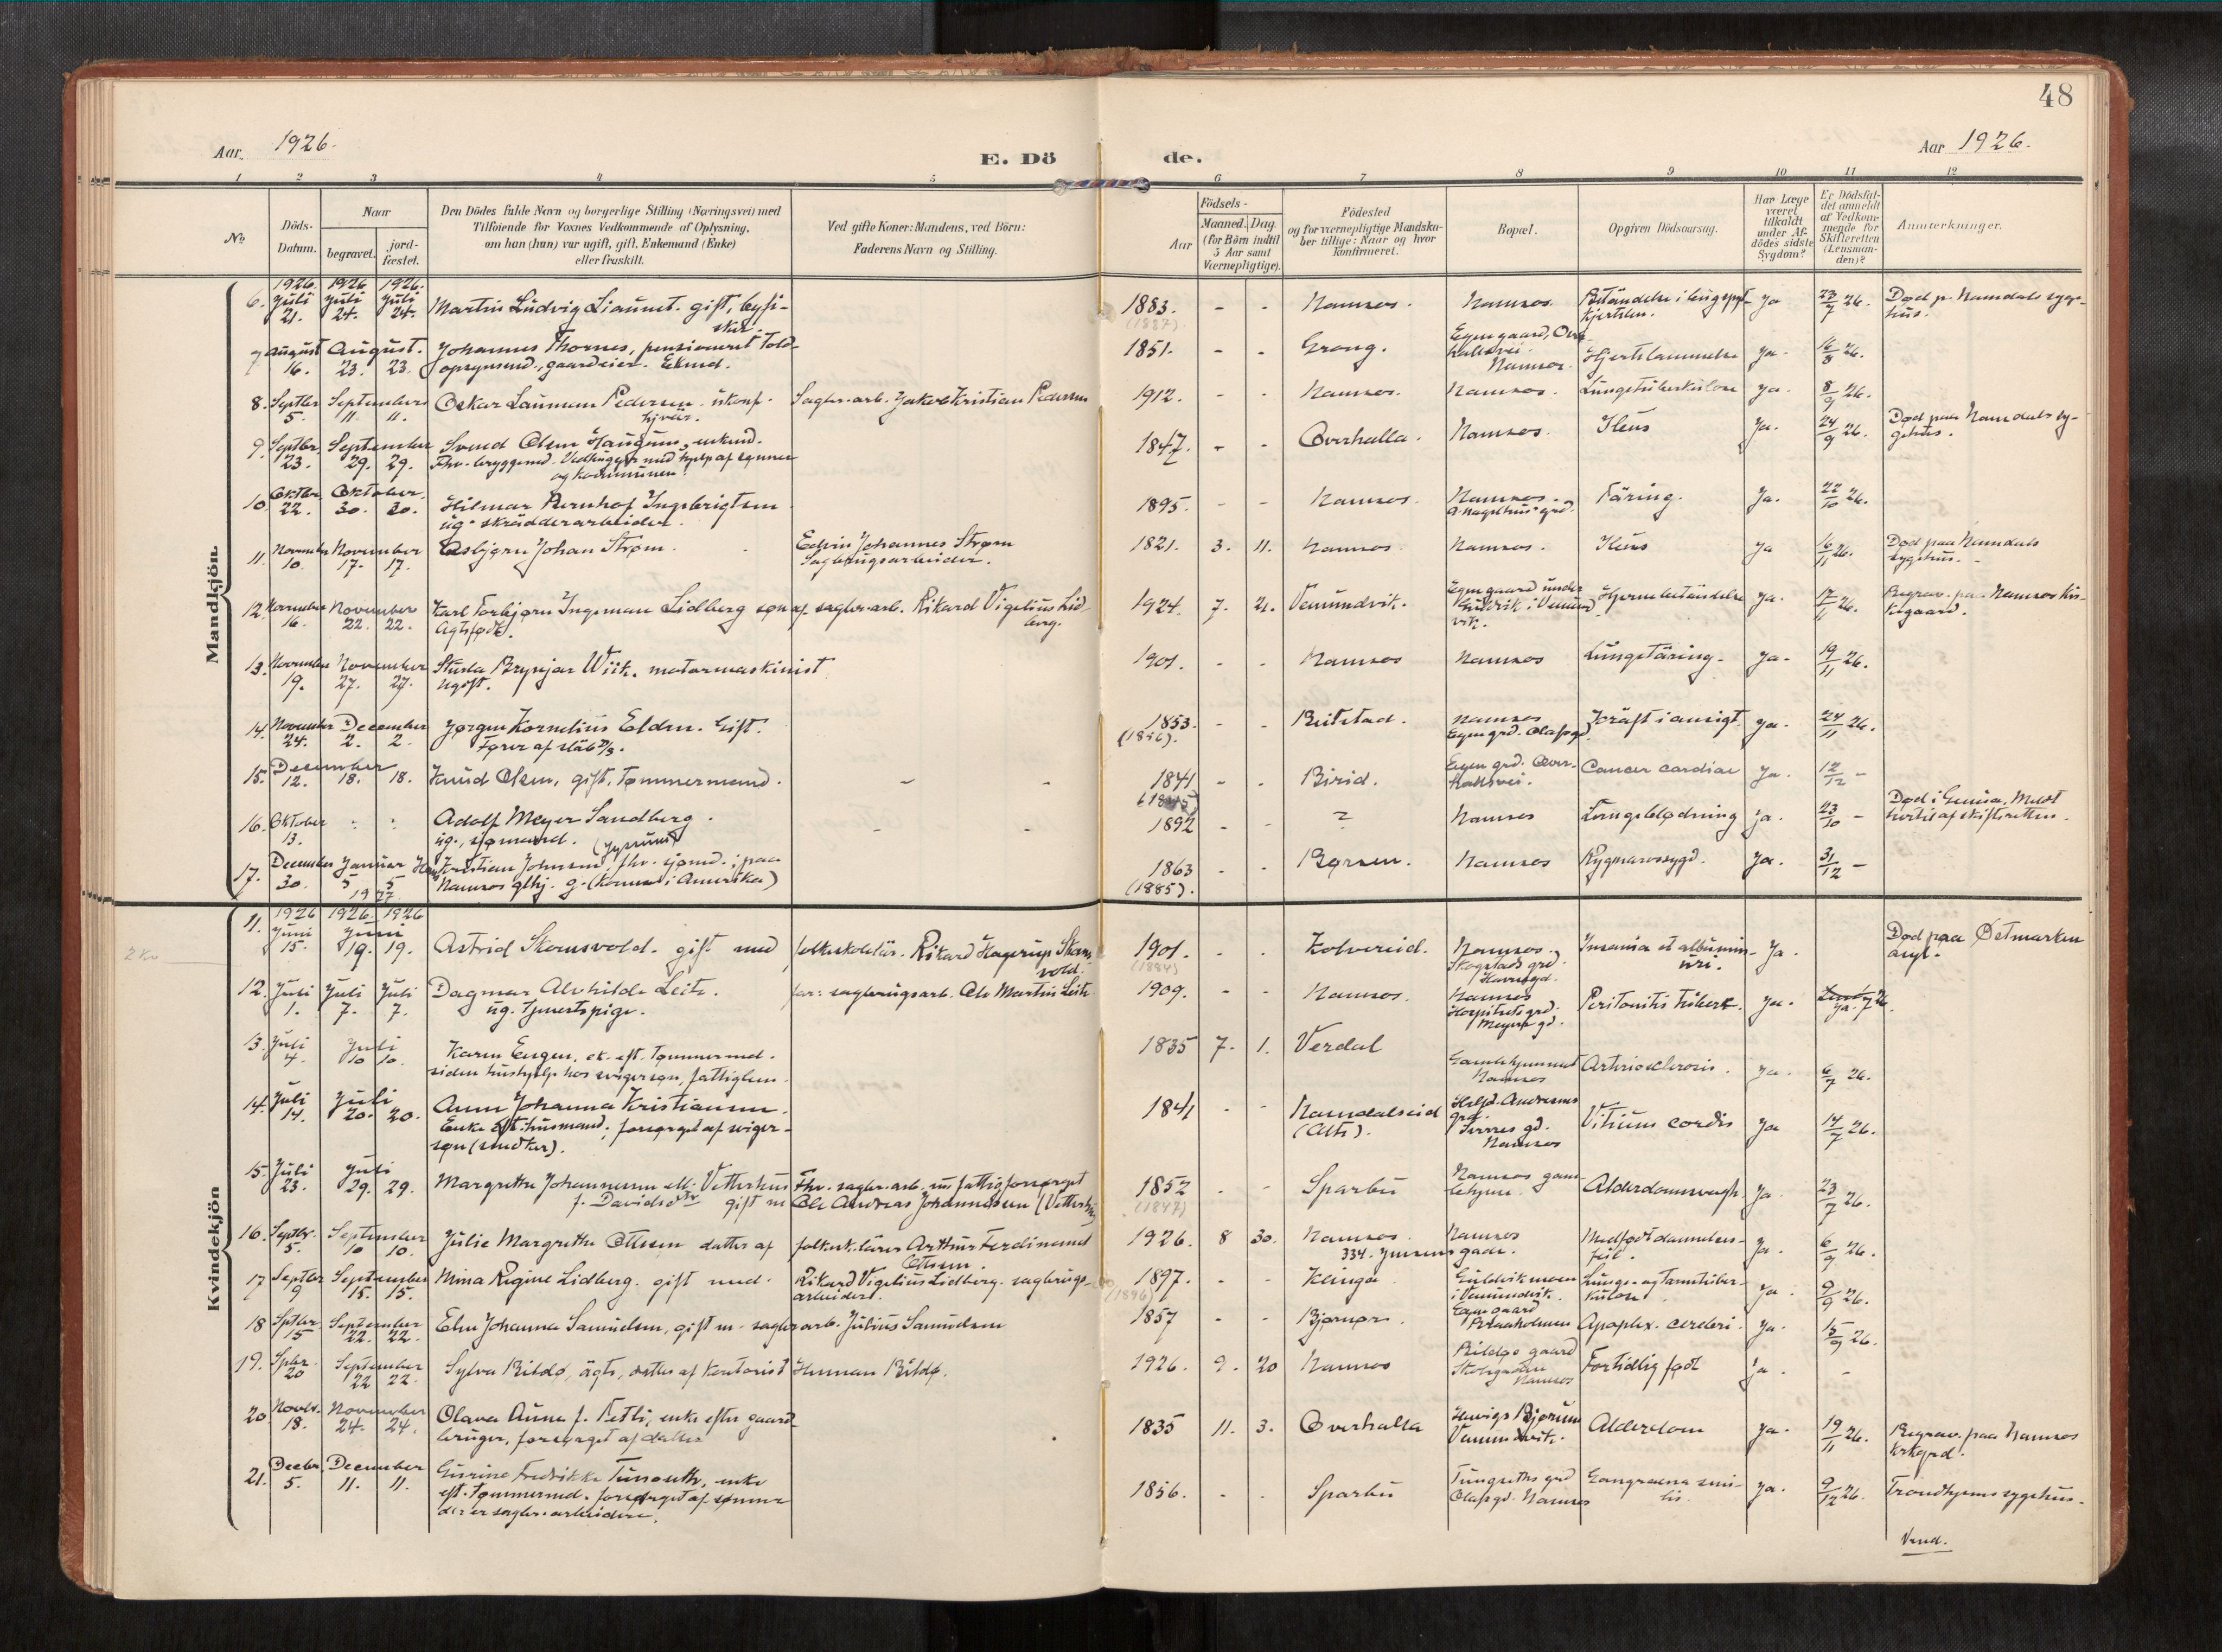 48
Aar 1926.
E. Dö
de.
Aar 1926.
1 2 3 4 5 6 7 8 9 10 11 12
No
Döds-Datum.
Naar
begravet.
jord-fæstet.
Den Dödes fulde Navn og borgerlige Stilling (Næringsvei) med
Tilföiende for Voxnes Vedkommende af Oplysning,
om han (hun) var ugift, gift, Enkemand (Enke)
eller fraskilt.
Ved gifte Koner: Mandens, ved Börn:
Faderens Navn og Stilling.
Födsels-
Aar
Maaned. Dag.
(for Börn indtil
5 Aar samt
Værnepligtige).
Födested
og for værnepligtige Mandska-
ber tillige: Naar og hvor
konfirmeret.
Bopæl.
Opgiven Dödsaarsag.
Har Læge
været
tilkaldt
under Af-
dödes sidste
Sygdom?
Er Dödsfal-
det anmeldt
af Vedkom-
mende for
Skifteretten
(Lensman-
den)?
Anmerkninger.
Mandkjön.
1926. 1926 1926.
6. Juli 21. Juli 24. Juli 24. Martin Ludvig Liaunet. gift, 1883. - - Namsos. Namsos. Ja 23/7 26. Død p. Namdals syge-
hus.
7 August 16. August. 23. 23. Johannes Thornes, pensioneret Told-
opsynsmd., gaardeier. Ekmd. 1851. - - Grong. Egen gaard, Namsos. Hjertelammelse Ja. 16/8 26.
8. Septbr 5. September 11. 11. Oskar Lauman Pedersen. ukonf. Sagbr.arb. Jakob Kristian Pedersen 1912. - - Namsos. Namsos. Lungetuberkulose Ja. 8/9 26.
9. Septbr 23. September 29. 29. Svend Olsen Haugum, enkmd.
og kommunen. 1847 - - Overhalla. Namsos. Ileus Ja. 24/9 26. Død paa Namdals sy-
gehus.
10. Oktbr. 22. Oktober. 30. 30. Hilmar Bernhof Ingebrigtsen
ug. skrædderarbeider. 1895. - - Namsos. Namsos. Täring. Ja. 22/10 26.
11. Novembr 10. November 17. 17. Asbjørn Johan Strøm. Edvin Johannes Strøm
Sagbrugsarbeider. 1821. 3. 11. Namsos. Namsos. Ileus Ja 16/11 26. Død paa Namdals
sygehus.
12. November 16. November 22. 22. Karl Torbjørn Ingeman Lidberg søn af sagbr.arb. Rikard Vigelius Lid-
berg.
Agtefødt. 1924. 7. 21. Vemundvik. Egen gaard under i Vemund
vik. Hjernebetændelse Ja. 17/11 26. Begrav. paa Namsos kir-
kegaard.
13. November 19. November 27. 27. Sturla Brynjar Wiik. motormaskinist
Ugift. 1901. - - Namsos Namsos Lungetäring. Ja. 19/11 26.
14. November 24. December 2. 2. Jørgen Kornelius Elden. Gift.
Fører af 1853. (1856). - - Beitstad. Namsos
Egen grd. Olafsgd. Kräft i ansigt. Ja. 24/11 26.
15. December 12. 18. 18. Knud Olsen, gift, Tømmermand. - - 1841 (1845) - - Birid. Egen grd. Over-
hallavei. Cancer cardiae Ja. 12/12 -
16. Oktober 13. : : Adolf Meyer Sandberg.
ug., sjømand. - - 1892 - - ? Namsos Lungeblødning Ja. 23/10 - Død i Genua. Meldt
hertil af skifteretten.
17. December 30. Januar 5 5 1927 Hans Kristian Johnsen, fhv. sjømd.; paa
Namsos glhj. g. (Konen i Amerika) 1863 (1885). - - Børsen. Namsos Rygmarvssygd. Ja. 31/12 -
Kvindekjön
2 Kv
1926 1926 1926
11. Juni 15. Juni 19. 19. Astrid Skomsvold. gift med folkeskolelär. Rikard Hagerup Skoms
vold. 1901. (1884) - - Kolvereid. Namsos.
Skogstads grd
Havnegd. Insania et albumin-
uri. Ja. Død paa Østmarken
asyl.
12. Juli 1. Juli 7. Juli 7. Dagmar Alvhilde Leite.
ug. Tjenestpige. far: sagbrugsarb. Ole Martin Leite 1909. - - Namsos. Namsos
Hospitets grd.
Meyers gd. Peritonitis tuberk. Ja. Ja. 7/26.
13. Juli 4. Juli 10 10. Karen Eugen, ek. eft. Tømmermd.
siden hushjelp hos svigersøn, fattiglem. 1835 7. 1. Verdal Gamlehjemmet
Namsos Arteriosclerosis. Ja. 6/7 26.
14. Juli 14. Juli 20. 20. Anne Johanna Kristiansen.
Enke eft. husmand, forsørget af sviger-
søn (snedker). 1841 - - Namdalseid
(Alts). Andersens
grd.
gd.
Namsos Vitium cordis Ja 14/7 26.
15. Juli 23. Juli 29. 29. Margrethe Johannessen ell. Vetterhus
f. Davidsdtr gift m Fhv. sagbr.arb. nu fattigforsørget
Ole Andreas Johannessen (Vetterhus) 1852 (1847) - - Sparbu Namsos gam-
lehjem. Alderdomssvagh. Ja. 23/7 26.
16. Septbr. 5. September 10 10. Julie Margrethe Ottesen datter af folkesk.lärer Arthur Ferdinand
Ottesen. 1926. 8 30. Namsos. Namsos
334. gade. Medfødt dannelses-
feil. Ja. 6/9 26.
17 Septbr 9 September 15. 15. Mina Regine Lidberg. gift med Rikard Vigelius Lidberg. sagbrugs-
arbeider. 1897. (1896) - - Klinga i Vemundvik. Lunge- og Tarmtuber-
kulose Ja. 9/9 26.
18 Septbr 15 September 22. 22. Elen Johanna Samuelsen, gift m. sagbrarb. Julius Samuelsen 1857 - - Bjørnør. Egen gaard Apoplex. cerebri. Ja. 15/9 26.
19. Spbr 20 September 22 22. Sylva Bildø, ägte, datter af Kontorist Herman Bildø. 1926. 9. 20 Namsos Bildøs gaard
Namsos Fortidlig født Ja. -
20. Novbr. 18. November 24. 24. Olava Anne f. enke efter gaard-
bruger, forsørget af datter 1835 11. 3. Overhalla
Vemundvik. Alderdom Ja. 19/11 26. Begrav. paa Namsos
krkgrd.
21. Decbr 5. December 11. 11. Gurine Fredrikke enke
eft. Tømmermd. forsørget af sønner
der er sagbr.arbeidere. 1856. - - Sparbu grd
Olafsgd. Namsos Gangraena seni-
lis. Ja. 9/12 26. Trondhjems sygehus.
Vend.